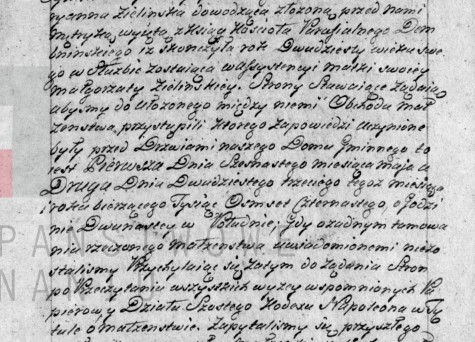 ryanna Zielinska dowodząca złożoną przed nami
mitryką wyiętą z Xiąg Kościoła Parafialnego Dem
blinskiego iż skonczyła rok Dwudziesty wieku swe
go w Służbie zostaiąca w assystencyi matki swoiey
małgorzaty Zielinskiey. Strony Stawaiące żądaią
abyśmy do ułożonego między niemi Obchodu mał
żenstwa, przystąpili ktorego zapowiedzi uczynione
były przed Drzwiami naszego Domu gminnego to
iest Pierwsza Dnia Szesnastego miesiąca maja a
Druga Dnia Dwudziestego trzeciego tegoż miesiąca
i roku bieżącego Tysiąc Osmset Czternastego, o godzi
nie Dwunastey w Południe; Gdy o żadnym tamowa
niu rzeczonego małżenstwa uwiadomionemi niezo
staliśmy Przychylaiąc się zatym do żądania Stron
po Przeczytaniu wszystkich wyżey wspomnionych Pa
pierow y Działu Szostego Kodexu Napoleona w Ty
tule o małżenstwie. Zapytaliśmy się przyszłego